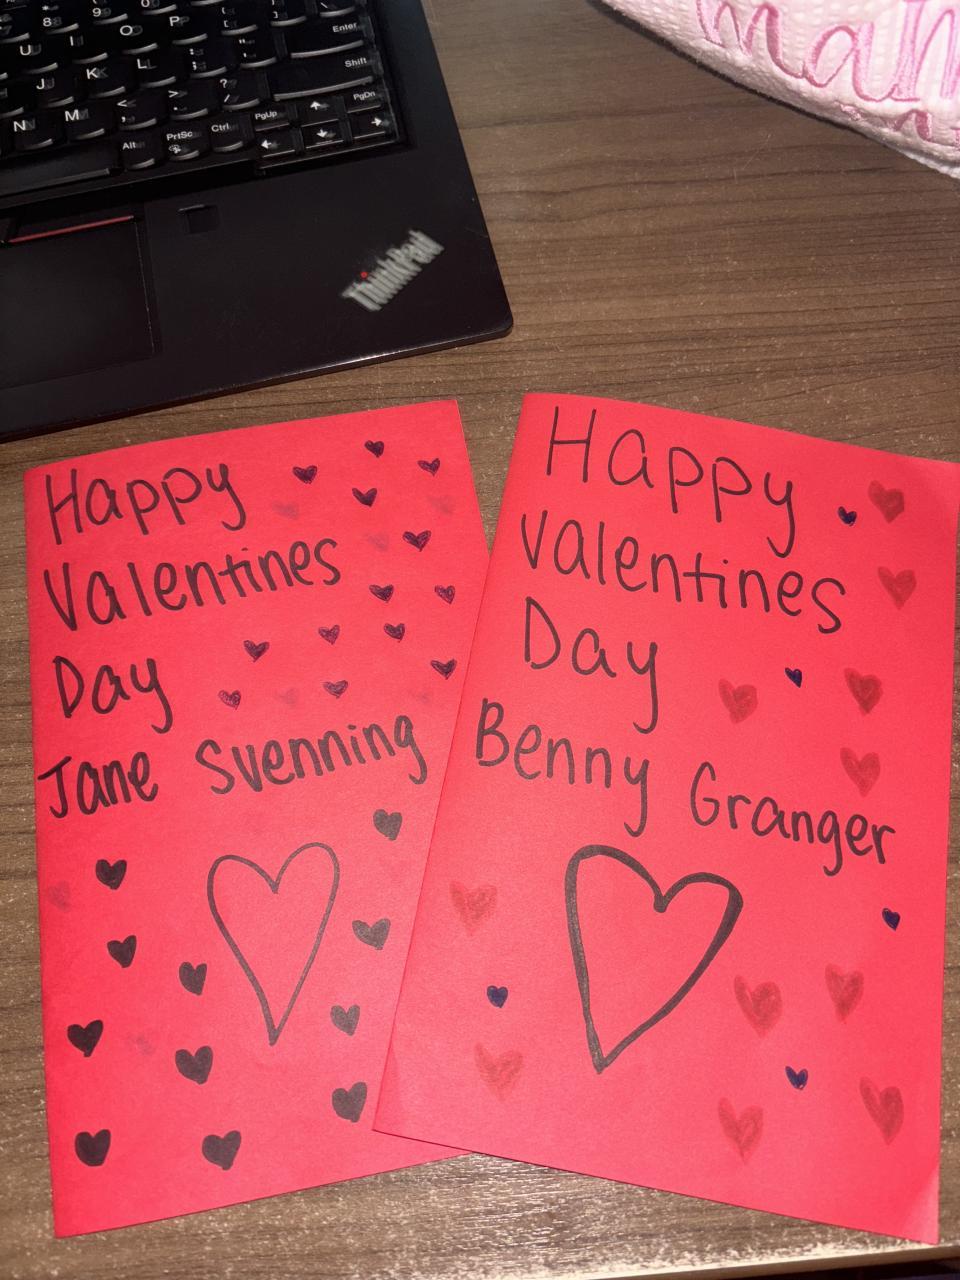 8
9
0
P
Enter
U
I
O
J
K
L
:
;
Shift
N
M
<
,
>
.
?
/
PgUp
PgDn
Alt
PrtSc
Ctrl
ThinkPad
Happy
Valentines
Day
Jane Svenning
Happy
Valentines
Day
Benny Granger